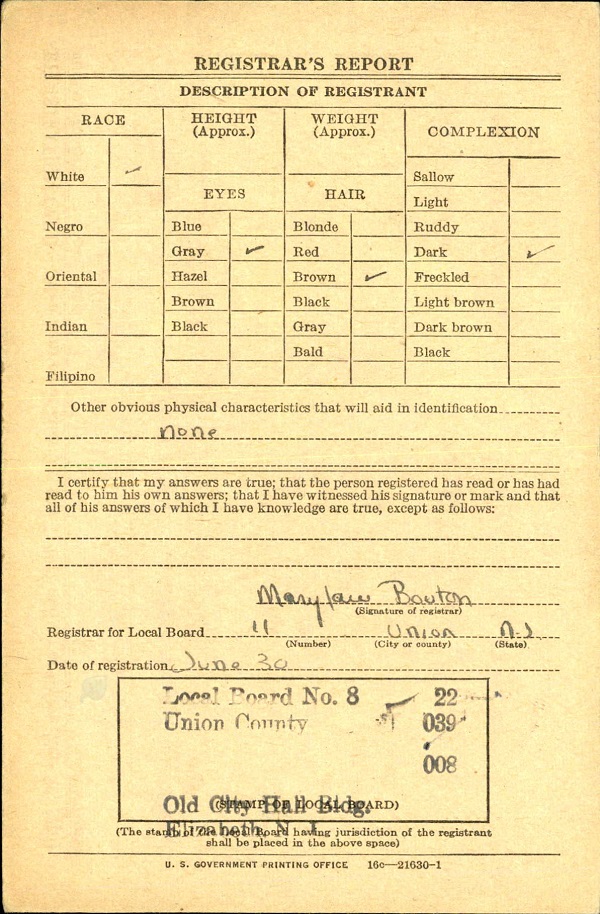 REGISTRAR'S REPORT
DESCRIPTION OF REGISTRANT
RACE
HEIGHT
(Approx.)
WEIGHT
(Approx.)
COMPLEXION
White ✓
Sallow
EYES
HAIR
Light
Negro
Blue
Blonde
Ruddy
Gray ✓
Red
Dark ✓
Oriental
Hazel
Brown ✓
Freckled
Brown
Black
Light brown
Indian
Black
Gray
Dark brown
Bald
Black
Filipino
Other obvious physical characteristics that will aid in identification
none
I certify that my answers are true; that the person registered has read or has had
read to him his own answers; that I have witnessed his signature or mark and that
all of his answers of which I have knowledge are true, except as follows:
Mary Jane Bouton
(Signature of registrar)
Registrar for Local Board 11 Union N.J.
(Number) (City or county) (State)
Date of registration June 30
Local Board No. 8 22
Union County 039
008
Old City Hall Bldg.
(STAMP OF LOCAL BOARD)
Elizabeth, N. J.
(The stamp of the Local Board having jurisdiction of the registrant
shall be placed in the above space)
U. S. GOVERNMENT PRINTING OFFICE 16c—21630-1